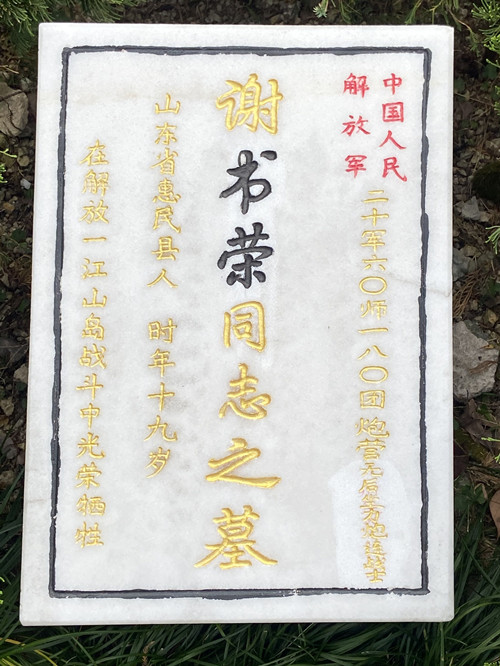 中国人民
解放军
二十军六〇师一八〇团炮营无后坐力炮连战士
谢书荣同志之墓
山东省惠民县人 时年十九岁
在解放一江山岛战斗中光荣牺牲